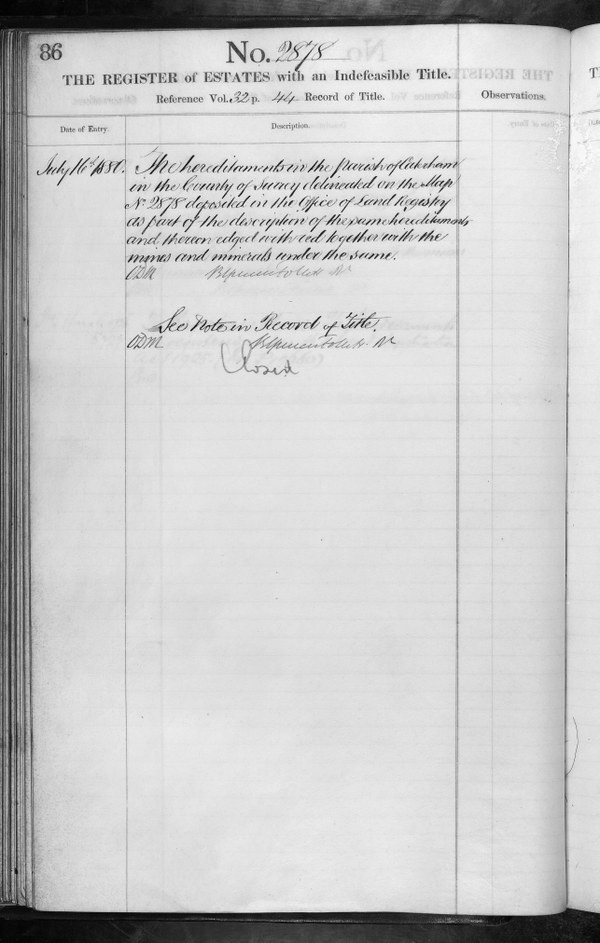 86
No. 2878
THE REGISTER of ESTATES with an Indefeasible Title.
Reference Vol. 32 p. 44 Record of Title.
Observations.
Date of Entry.
Description.
July 16th 1880.
The hereditaments in the Parish of Caterham
in the County of Surrey delineated on the Map
No. 2878 deposited in the Office of Land Registry
as part of the description of the same hereditaments
and thereon edged with red together with the
mines and minerals under the same.
ODM
See Note in Record of Title.
ODM
Closed